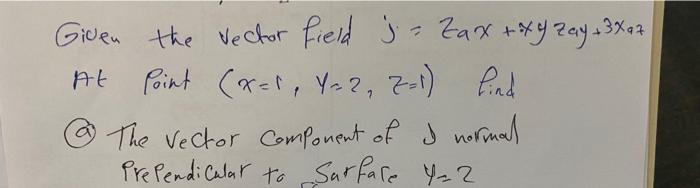 Given the vector field j = Zax + xy Zay + 3xaz
At Point (x=1, Y=2, Z=1) find
ⓐ The vector component of J normal
PrePendicular to Surface Y=2